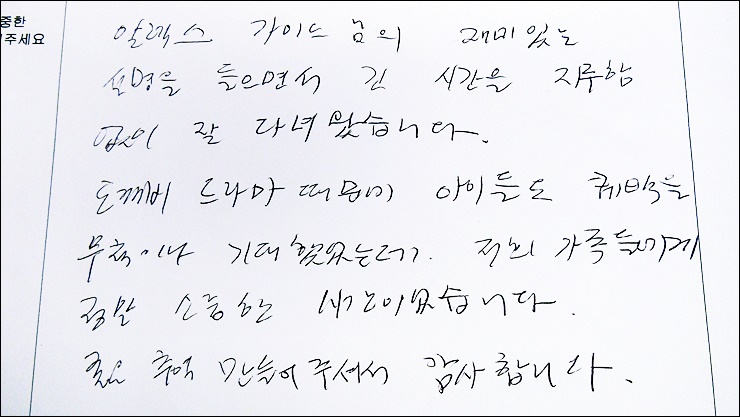 중한
주세요
알렉스 가이드님의 재미있는
설명을 들으면서 긴 시간을 지루함
없이 잘 다녀왔습니다.
도깨비 드라마 때문에 아이들도 퀘벡을
무척이나 기대했었는데. 저희 가족들에게
정말 소중한 시간이었습니다.
좋은 추억 만들어주셔서 감사합니다.